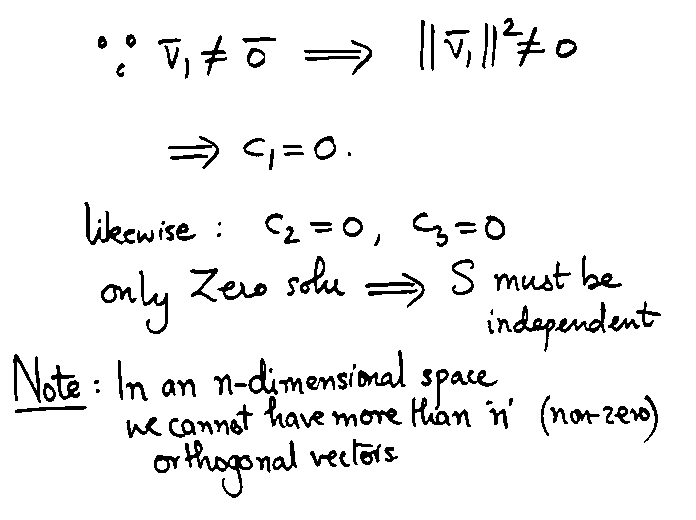 ∵ v̄₁ ≠ 0̄ ⟹ ||v̄₁||² ≠ 0
⟹ c₁ = 0.
likewise : c₂ = 0, c₃ = 0
only Zero solu ⟹ S must be
independent
Note : In an n-dimensional space
we cannot have more than 'n' (non-zero)
orthogonal vectors